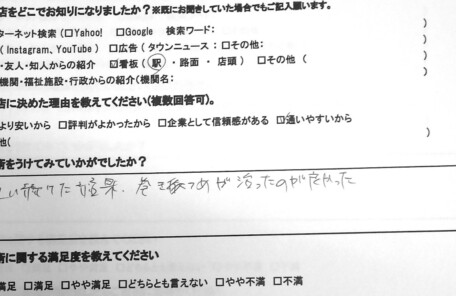 店をどこでお知りになりましたか？※既にお聞きしていた場合でもご記入願います。
ターネット検索（☐Yahoo! ☐Google 検索ワード： ）
（Instagram、YouTube） ☐広告（タウンニュース：☐その他： ）
・友人・知人からの紹介 ☑看板（駅・路面・店頭） ☐その他（ ）
機関・福祉施設・行政からの紹介（機関名： ）
店に決めた理由を教えてください（複数回答可）。
より安いから ☐評判がよかったから ☐企業として信頼感がある ☐通いやすいから
他（ ）
術をうけてみていかがでしたか？
結果、巻き爪が治ったのが良かった
術に関する満足度を教えてください
満足 ☐満足 ☐やや満足 ☐どちらとも言えない ☐やや不満 ☐不満